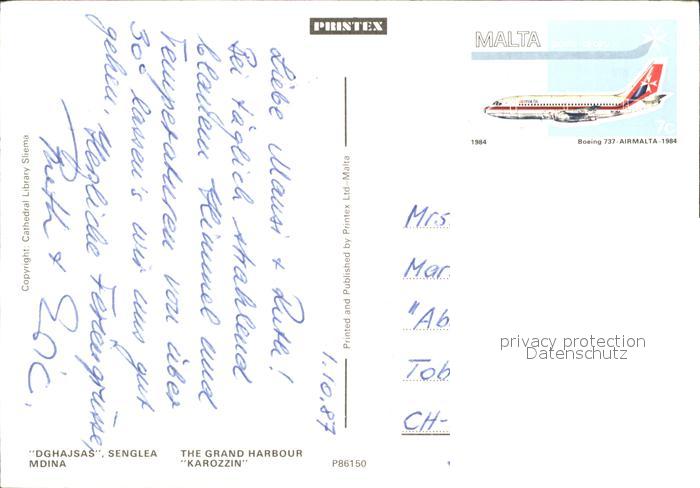 PRINTEX
MALTA
airmalta
7c
1984
Boeing 737-AIRMALTA-1984
1.10.87
Liebe Mausi + Ruth!
Bei täglich strahlend
blauem Himmel und
Temperaturen von über
30° lassen's wir uns gut
gehen. Herzliche Feriengrüsse,
Ruth +
Copyright: Cathedral Library Sliema
Printed and Published by Printex Ltd–Malta
Mrs.
Mar
"Ab
Tob
CH-
privacy protection
Datenschutz
"DGHAJSAS", SENGLEA
MDINA
THE GRAND HARBOUR
"KAROZZIN"
P86150